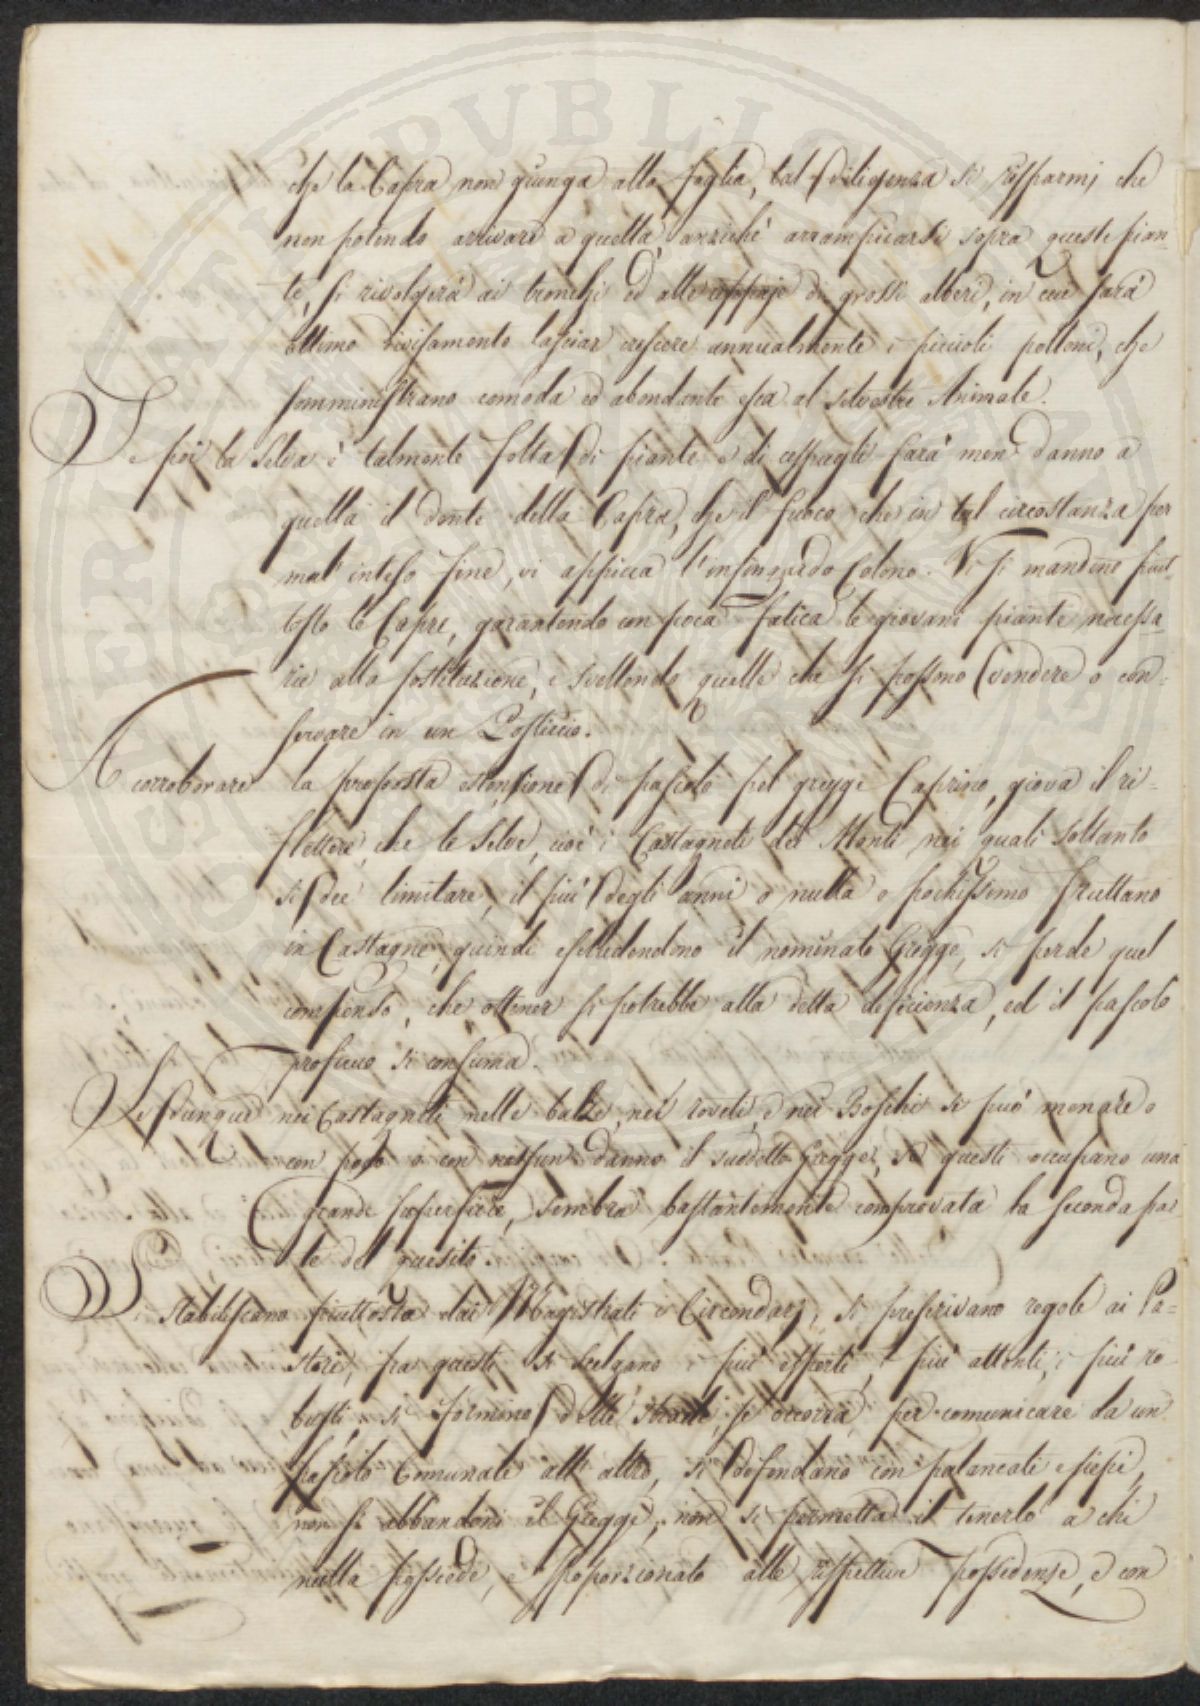 che la Capra non giunga alla foglia, tal diligenza si risparmj che
non potendo arrivare a quella, anzichè arrampicarsi sopra queste pian-
te, si rivolgerà ai tronchi ed alle ceppaje di grossi alberi, in cui sarà
ottimo divisamento lasciar crescere annualmente i piccioli polloni, che
somministrano comoda ed abondante esca al silvestre Animale.
Se poi la Selva è talmente folta di piante e di cespugli farà men danno a
quella il dente della Capra, che il fuoco che in tal circostanza per
mal' inteso fine, vi appicca l'infingardo Colono. Vi si mandino piut-
tosto le Capre, garantendo con poca fatica le giovani piante necessa-
rie alla sostituzione, e svellendo quelle che si possono vendere o con-
servare in un Posticcio.
A corroborare la proposta estensione di pascolo pel gregge Caprino, giova il ri-
flettere, che le Selve, cioè i Castagneti dei Monti nei quali soltanto
si dee limitare, il più degli anni o nulla o pochissimo fruttano
in Castagne, quindi escludendono il nominato Gregge, si perde quel
compenso, che ottener si potrebbe alla detta deficienza, ed il pascolo
proficuo si consuma.
Se dunque nei Castagneti nelle balze, nei roveti, e nei Boschi si può menare o
con poco o con nessun danno il suddetto Gregge, se questi occupano una
grande superficie, sembra bastantemente comprovata la seconda par
te del quesito.
Si stabiliscano piuttosto dai Magistrati i Circondarj, si prescrivano regole ai Pa-
stori, fra questi si scelgano i più esperti, i più attenti, i più ro-
busti, si formino delle strade, se occorra, per comunicare da un
pascolo Comunale all' altro, si difendano con palancati e siepi,
non si abbandoni il Gregge, non si permetta il tenerlo a chi
nulla possiede, e proporzionato alle rispettive possidenze, e con